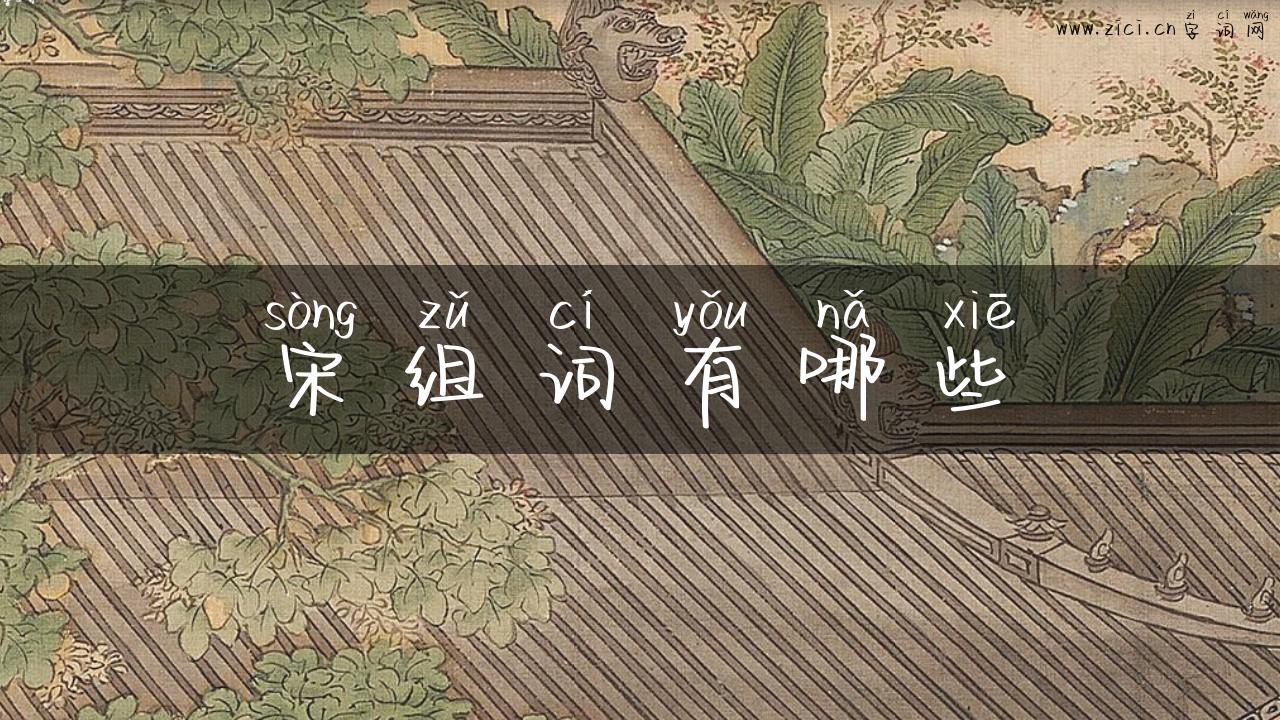 zì cí wǎng
www.zici.cn 字词网
sòng zǔ cí yǒu nǎ xiē
宋组词有哪些